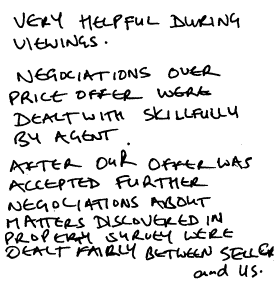 VERY HELPFUL DURING
VIEWINGS.
NEGOCIATIONS OVER
PRICE OFFER WERE
DEALT WITH SKILLFULLY
BY AGENT.
AFTER OUR OFFER WAS
ACCEPTED FURTHER
NEGOCIATIONS ABOUT
MATTERS DISCOVERED IN
PROPERTY SURVEY WERE
DEALT FAIRLY BETWEEN SELLER
and US.